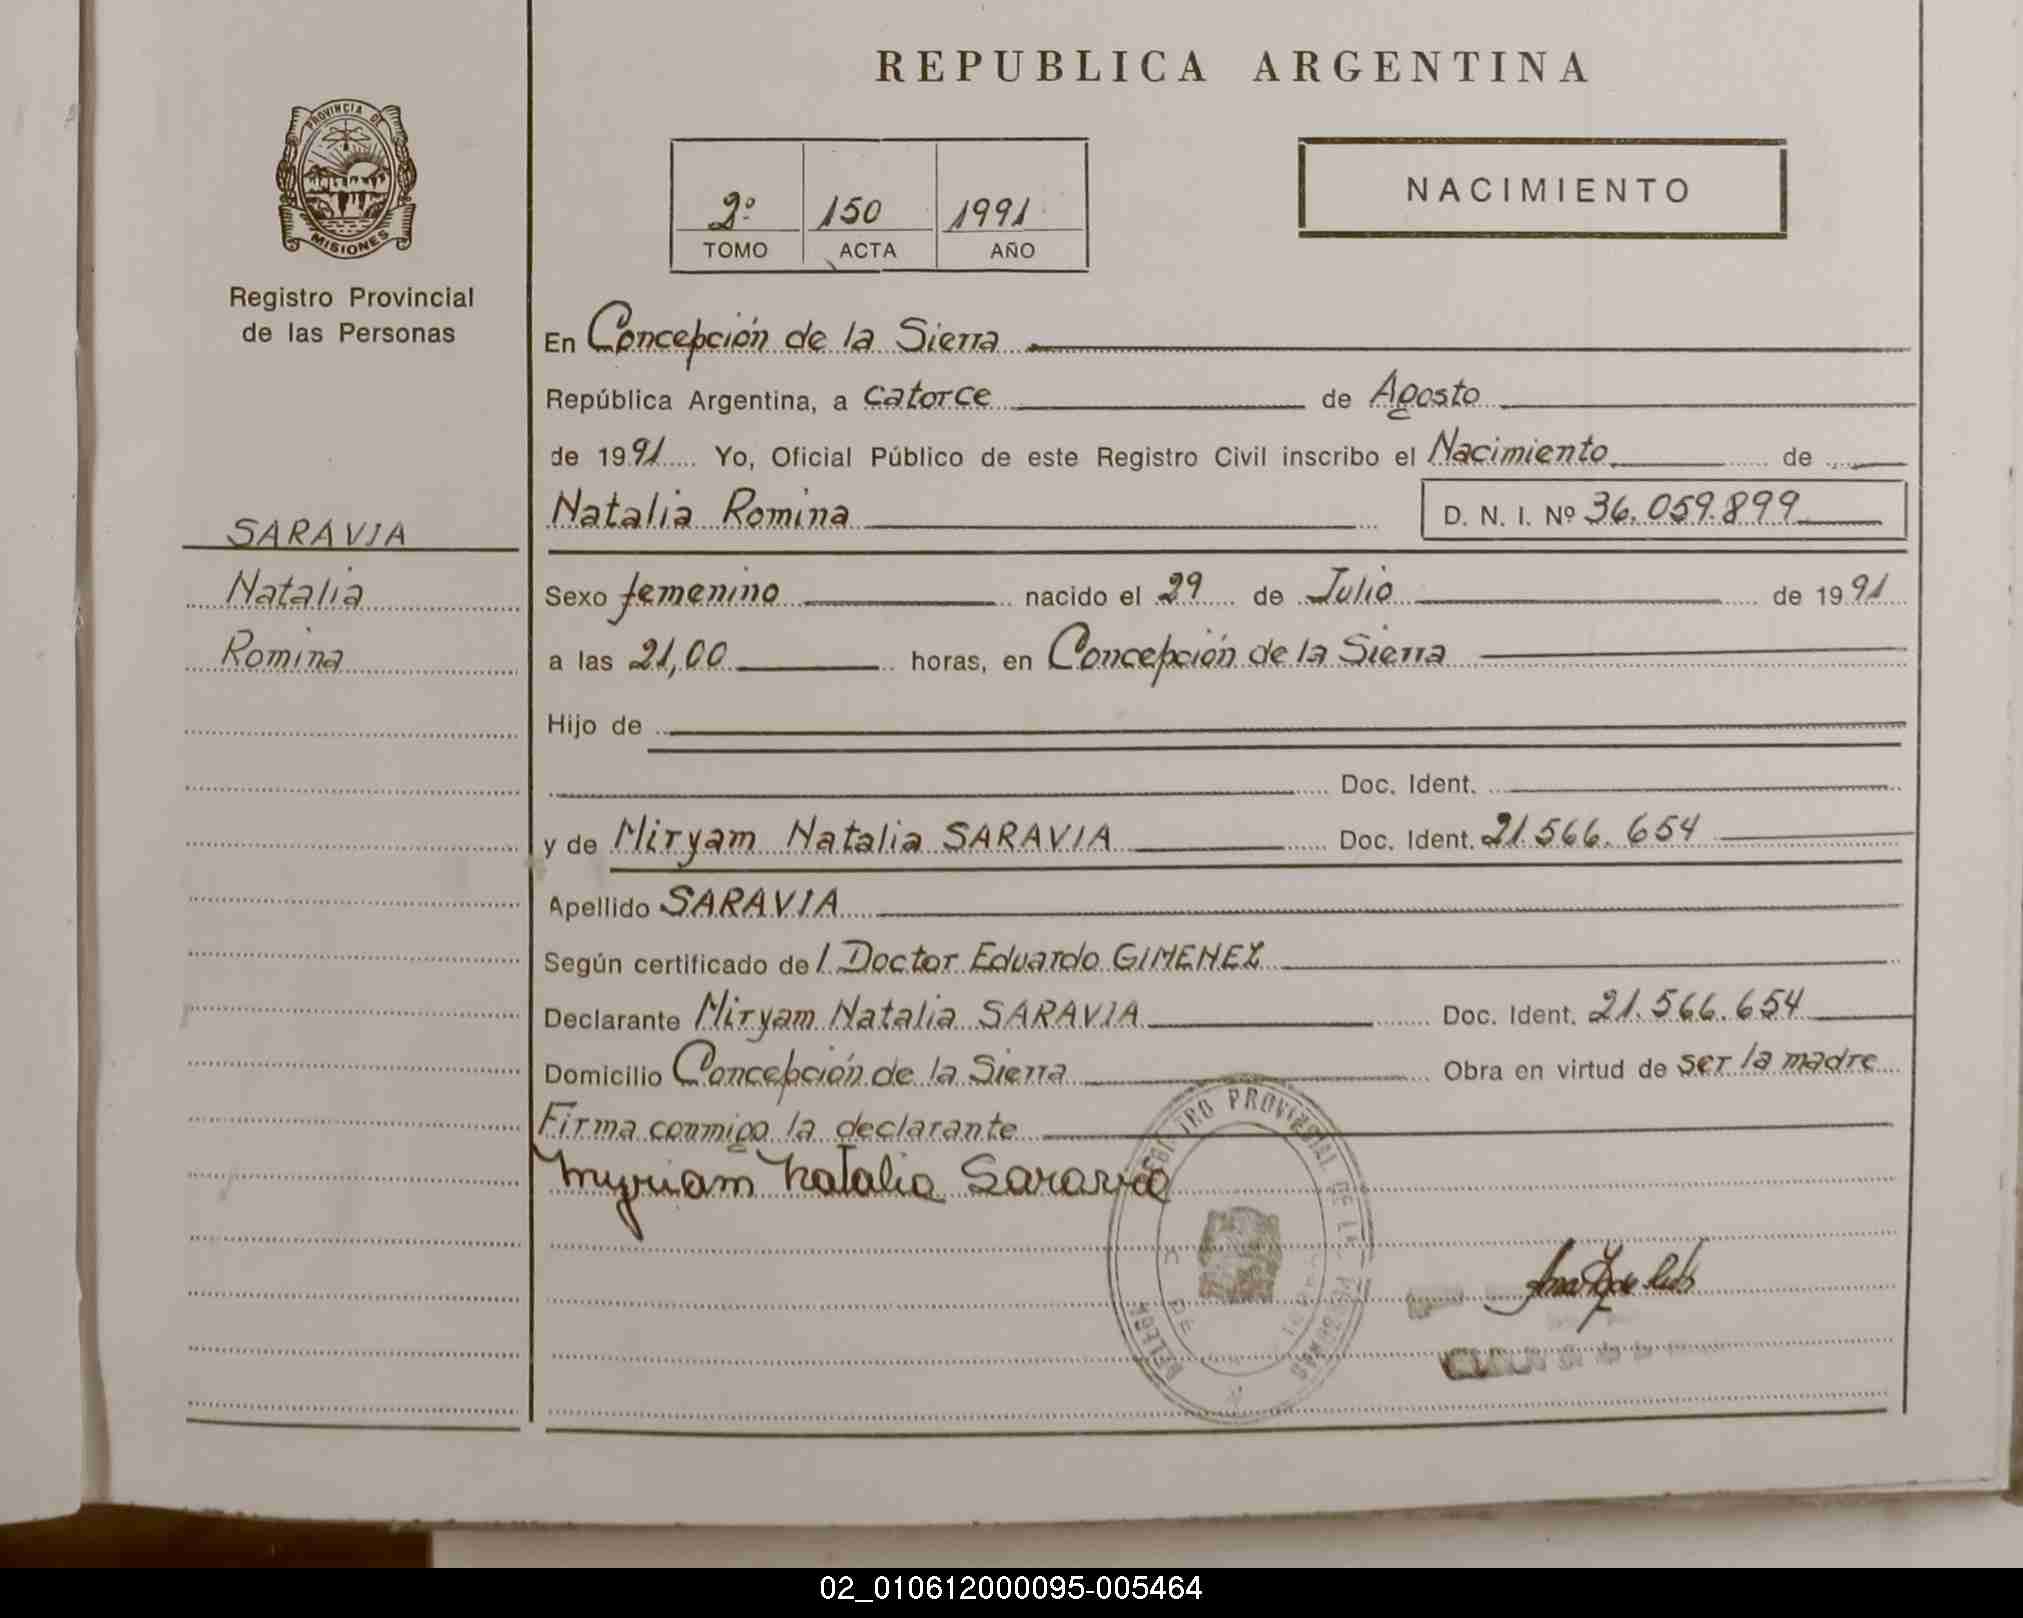 REPUBLICA ARGENTINA
PROVINCIA DE
MISIONES
Registro Provincial
de las Personas
2º 150 1991
TOMO ACTA AÑO
NACIMIENTO
En Concepción de la Sierra
República Argentina, a catorce de Agosto
de 1991 Yo, Oficial Público de este Registro Civil inscribo el Nacimiento de
Natalia Romina D. N. I. Nº 36.059.899
SARAVIA
Natalia
Romina
Sexo femenino nacido el 29 de Julio de 1991
a las 21,00 horas, en Concepción de la Sierra
Hijo de
Doc. Ident.
y de Miryam Natalia SARAVIA Doc. Ident. 21.566.654
Apellido SARAVIA
Según certificado del Doctor Eduardo GIMENEZ
Declarante Miryam Natalia SARAVIA Doc. Ident. 21.566.654
Domicilio Concepción de la Sierra Obra en virtud de ser la madre
Firma conmigo la declarante
Myriam Natalia Saravia
REGISTRO PROVINCIAL DE LAS PERSONAS
02_010612000095-005464